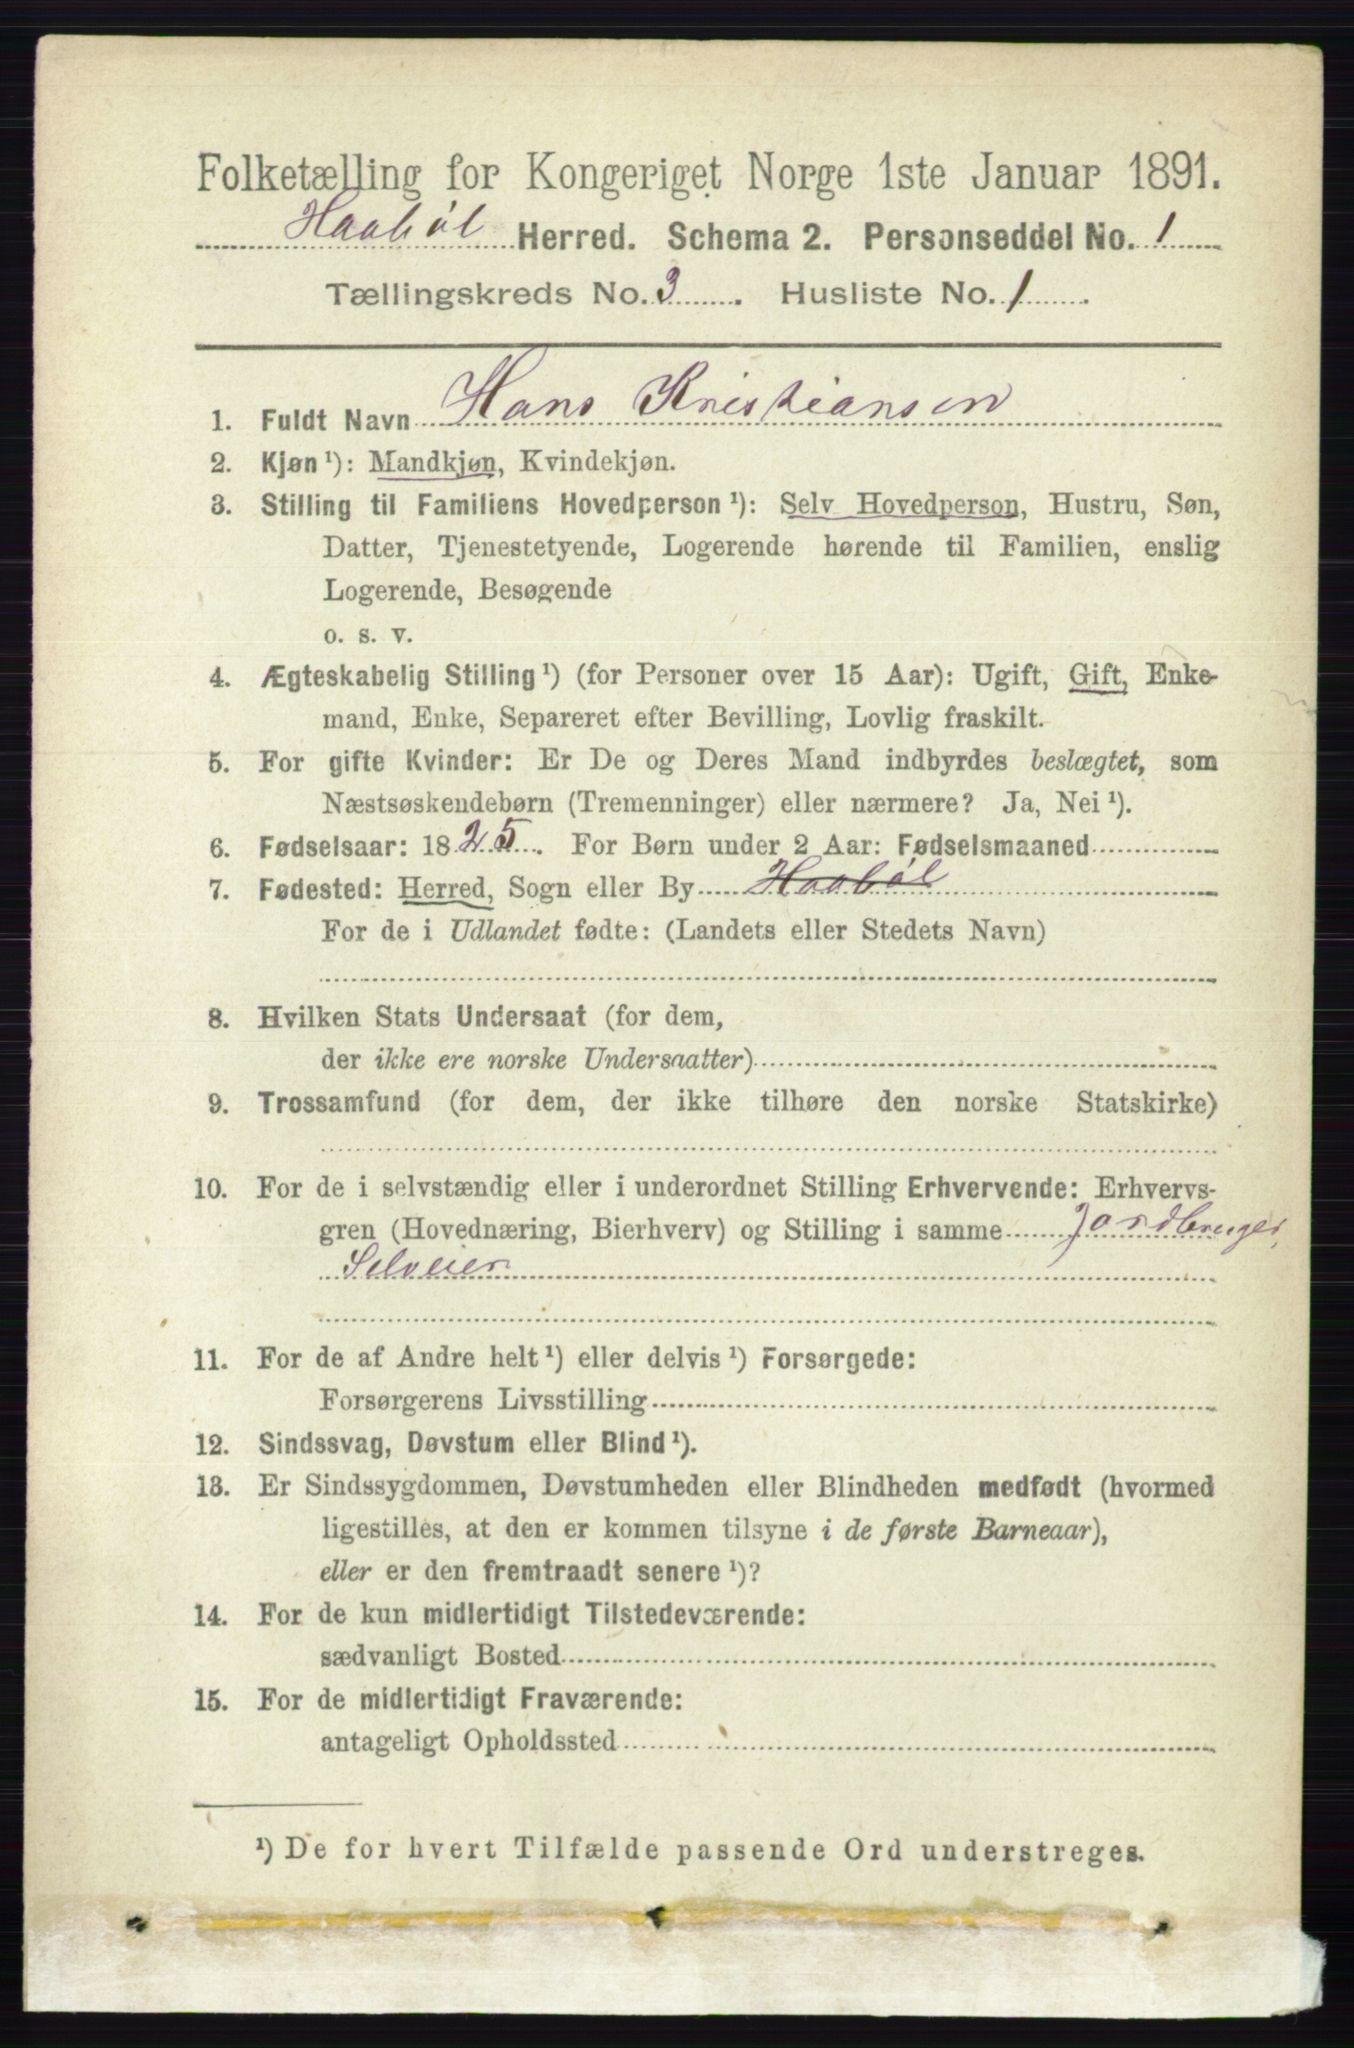 Folketælling for Kongeriget Norge 1ste Januar 1891.
Haabøl Herred. Schema 2. Personseddel No. 1
Tællingskreds No. 3. Husliste No. 1.
1. Fuldt Navn Hans Kristiansen
2. Kjøn ¹): Mandkjøn, Kvindekjøn.
3. Stilling til Familiens Hovedperson ¹): Selv Hovedperson, Hustru, Søn,
Datter, Tjenestetyende, Logerende hørende til Familien, enslig
Logerende, Besøgende
o. s. v.
4. Ægteskabelig Stilling ¹) (for Personer over 15 Aar): Ugift, Gift, Enke-
mand, Enke, Separeret efter Bevilling, Lovlig fraskilt.
5. For gifte Kvinder: Er De og Deres Mand indbyrdes beslægtet, som
Næstsøskendebørn (Tremenninger) eller nærmere? Ja, Nei ¹).
6. Fødselsaar: 1825. For Børn under 2 Aar: Fødselsmaaned
7. Fødested: Herred, Sogn eller By Haabøl
For de i Udlandet fødte: (Landets eller Stedets Navn)
8. Hvilken Stats Undersaat (for dem,
der ikke ere norske Undersaatter)
9. Trossamfund (for dem, der ikke tilhøre den norske Statskirke)
10. For de i selvstændig eller i underordnet Stilling Erhvervende: Erhvervs-
gren (Hovednæring, Bierhverv) og Stilling i samme Jordbruger,
Selveier
11. For de af Andre helt ¹) eller delvis ¹) Forsørgede:
Forsørgerens Livsstilling
12. Sindssvag, Døvstum eller Blind ¹).
13. Er Sindssygdommen, Døvstumheden eller Blindheden medfødt (hvormed
ligestilles, at den er kommen tilsyne i de første Barneaar),
eller er den fremtraadt senere ¹)?
14. For de kun midlertidigt Tilstedeværende:
sædvanligt Bosted
15. For de midlertidigt Fraværende:
antageligt Opholdssted
¹) De for hvert Tilfælde passende Ord understreges.